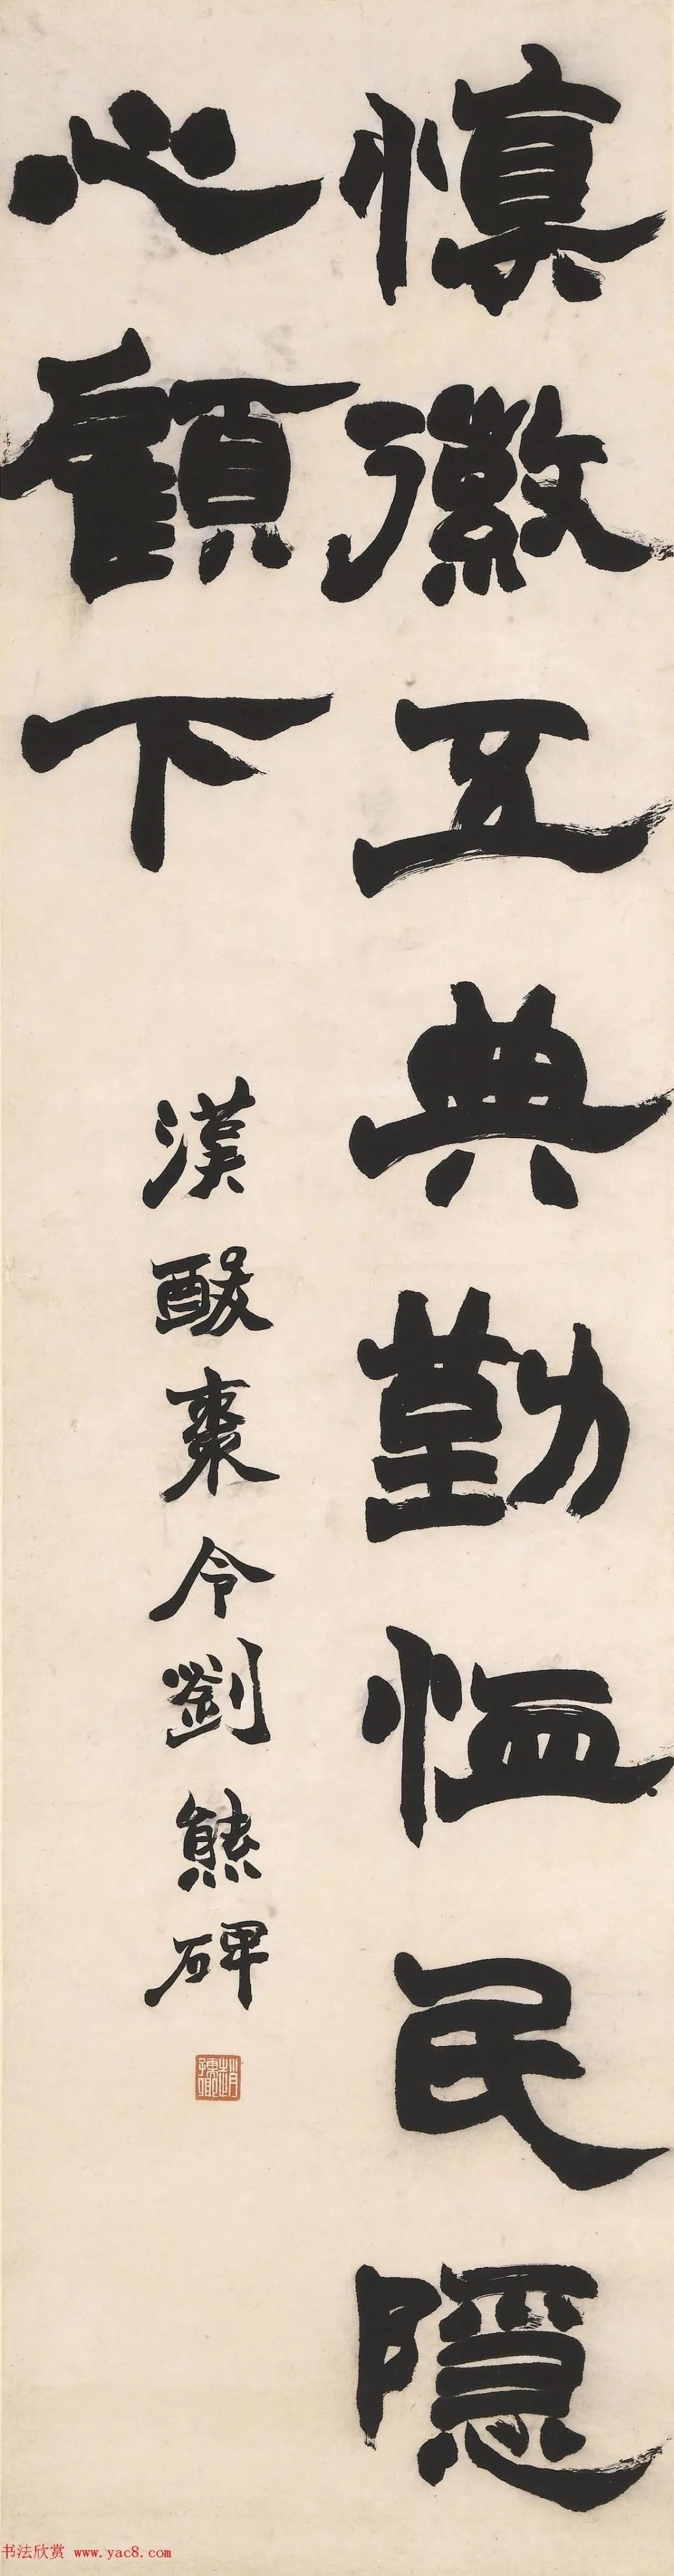 慎徽五典勤恤民隱
心顧下
漢酸棗令劉熊碑
趙之謙印
书法欣赏 www.yac8.com